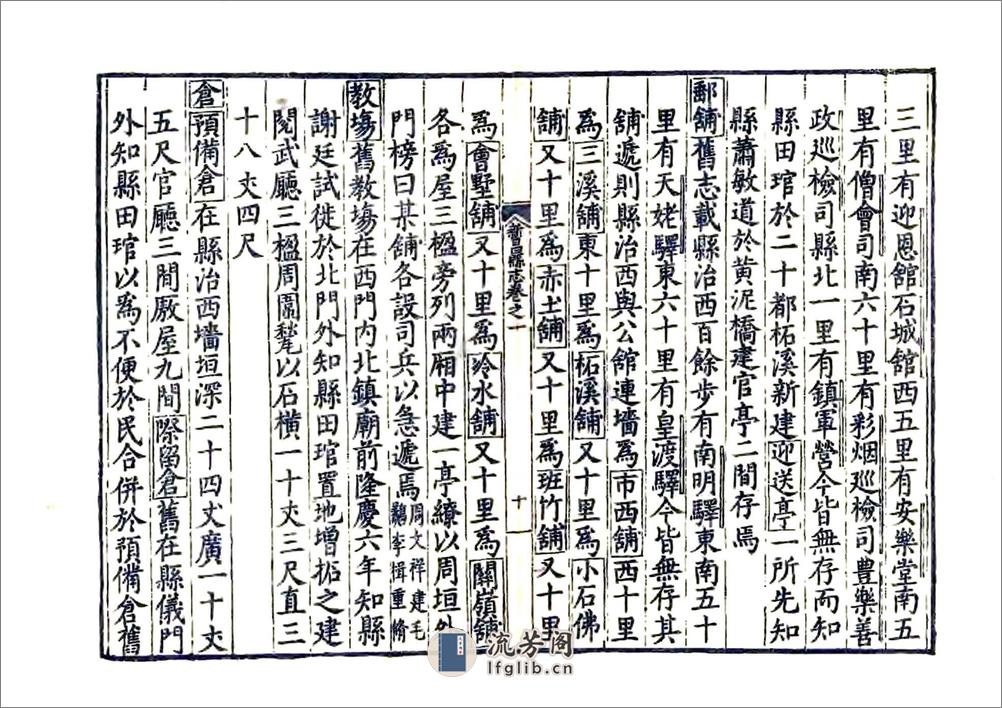 三里有迎恩舘石城舘西五里有安樂堂南五
里有僧會司南六十里有彩烟巡檢司豊樂善
政巡檢司縣北一里有鎮軍營今皆無存而知
縣田琯於二十都柘溪新建迎送亭一所先知
縣蕭敏道於黄泥橋建官亭二間存焉
郵舖舊志載縣治西百餘步有南明驛東南五十
里有天姥驛東六十里有皇渡驛今皆無存其
舖遞則縣治西與公舘連墻爲市西舖西十里
爲三溪舖東十里爲柘溪舖又十里爲小石佛
舖又十里爲赤土舖又十里爲班竹舖又十里
新昌縣志卷之一
十一
爲會墅舖又十里爲冷水舖又十里爲關嶺舖
各爲屋三楹旁列兩厢中建一亭繚以周垣外
門榜曰某舖各設司兵以急遞焉周文祥建毛鸛李楫重脩
教塲舊教塲在西門内北鎮廟前隆慶六年知縣
謝廷試徙於北門外知縣田琯置地增拓之建
閱武廳三楹周圍甃以石横一十丈三尺直三
十八丈四尺
倉預備倉在縣治西墻垣深二十四丈廣一十丈
五尺官廳三間厫屋九間際留倉舊在縣儀門
外知縣田琯以爲不便於民合併於預備倉舊
流芳阁
lfglib.cn